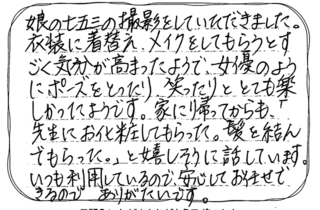 娘の七五三の撮影をしていただきました。
衣装に着替え、メイクをしてもらうとす
ごく気分が高まったようで、女優のよう
にポーズをとったり、笑ったりととても楽
しかったようです。家に帰ってからも、「
先生にお化粧してもらった。髪を結ん
でもらった。」と嬉しそうに話しています。
いつも利用しているので、安心してお任せで
きるので ありがたいです。